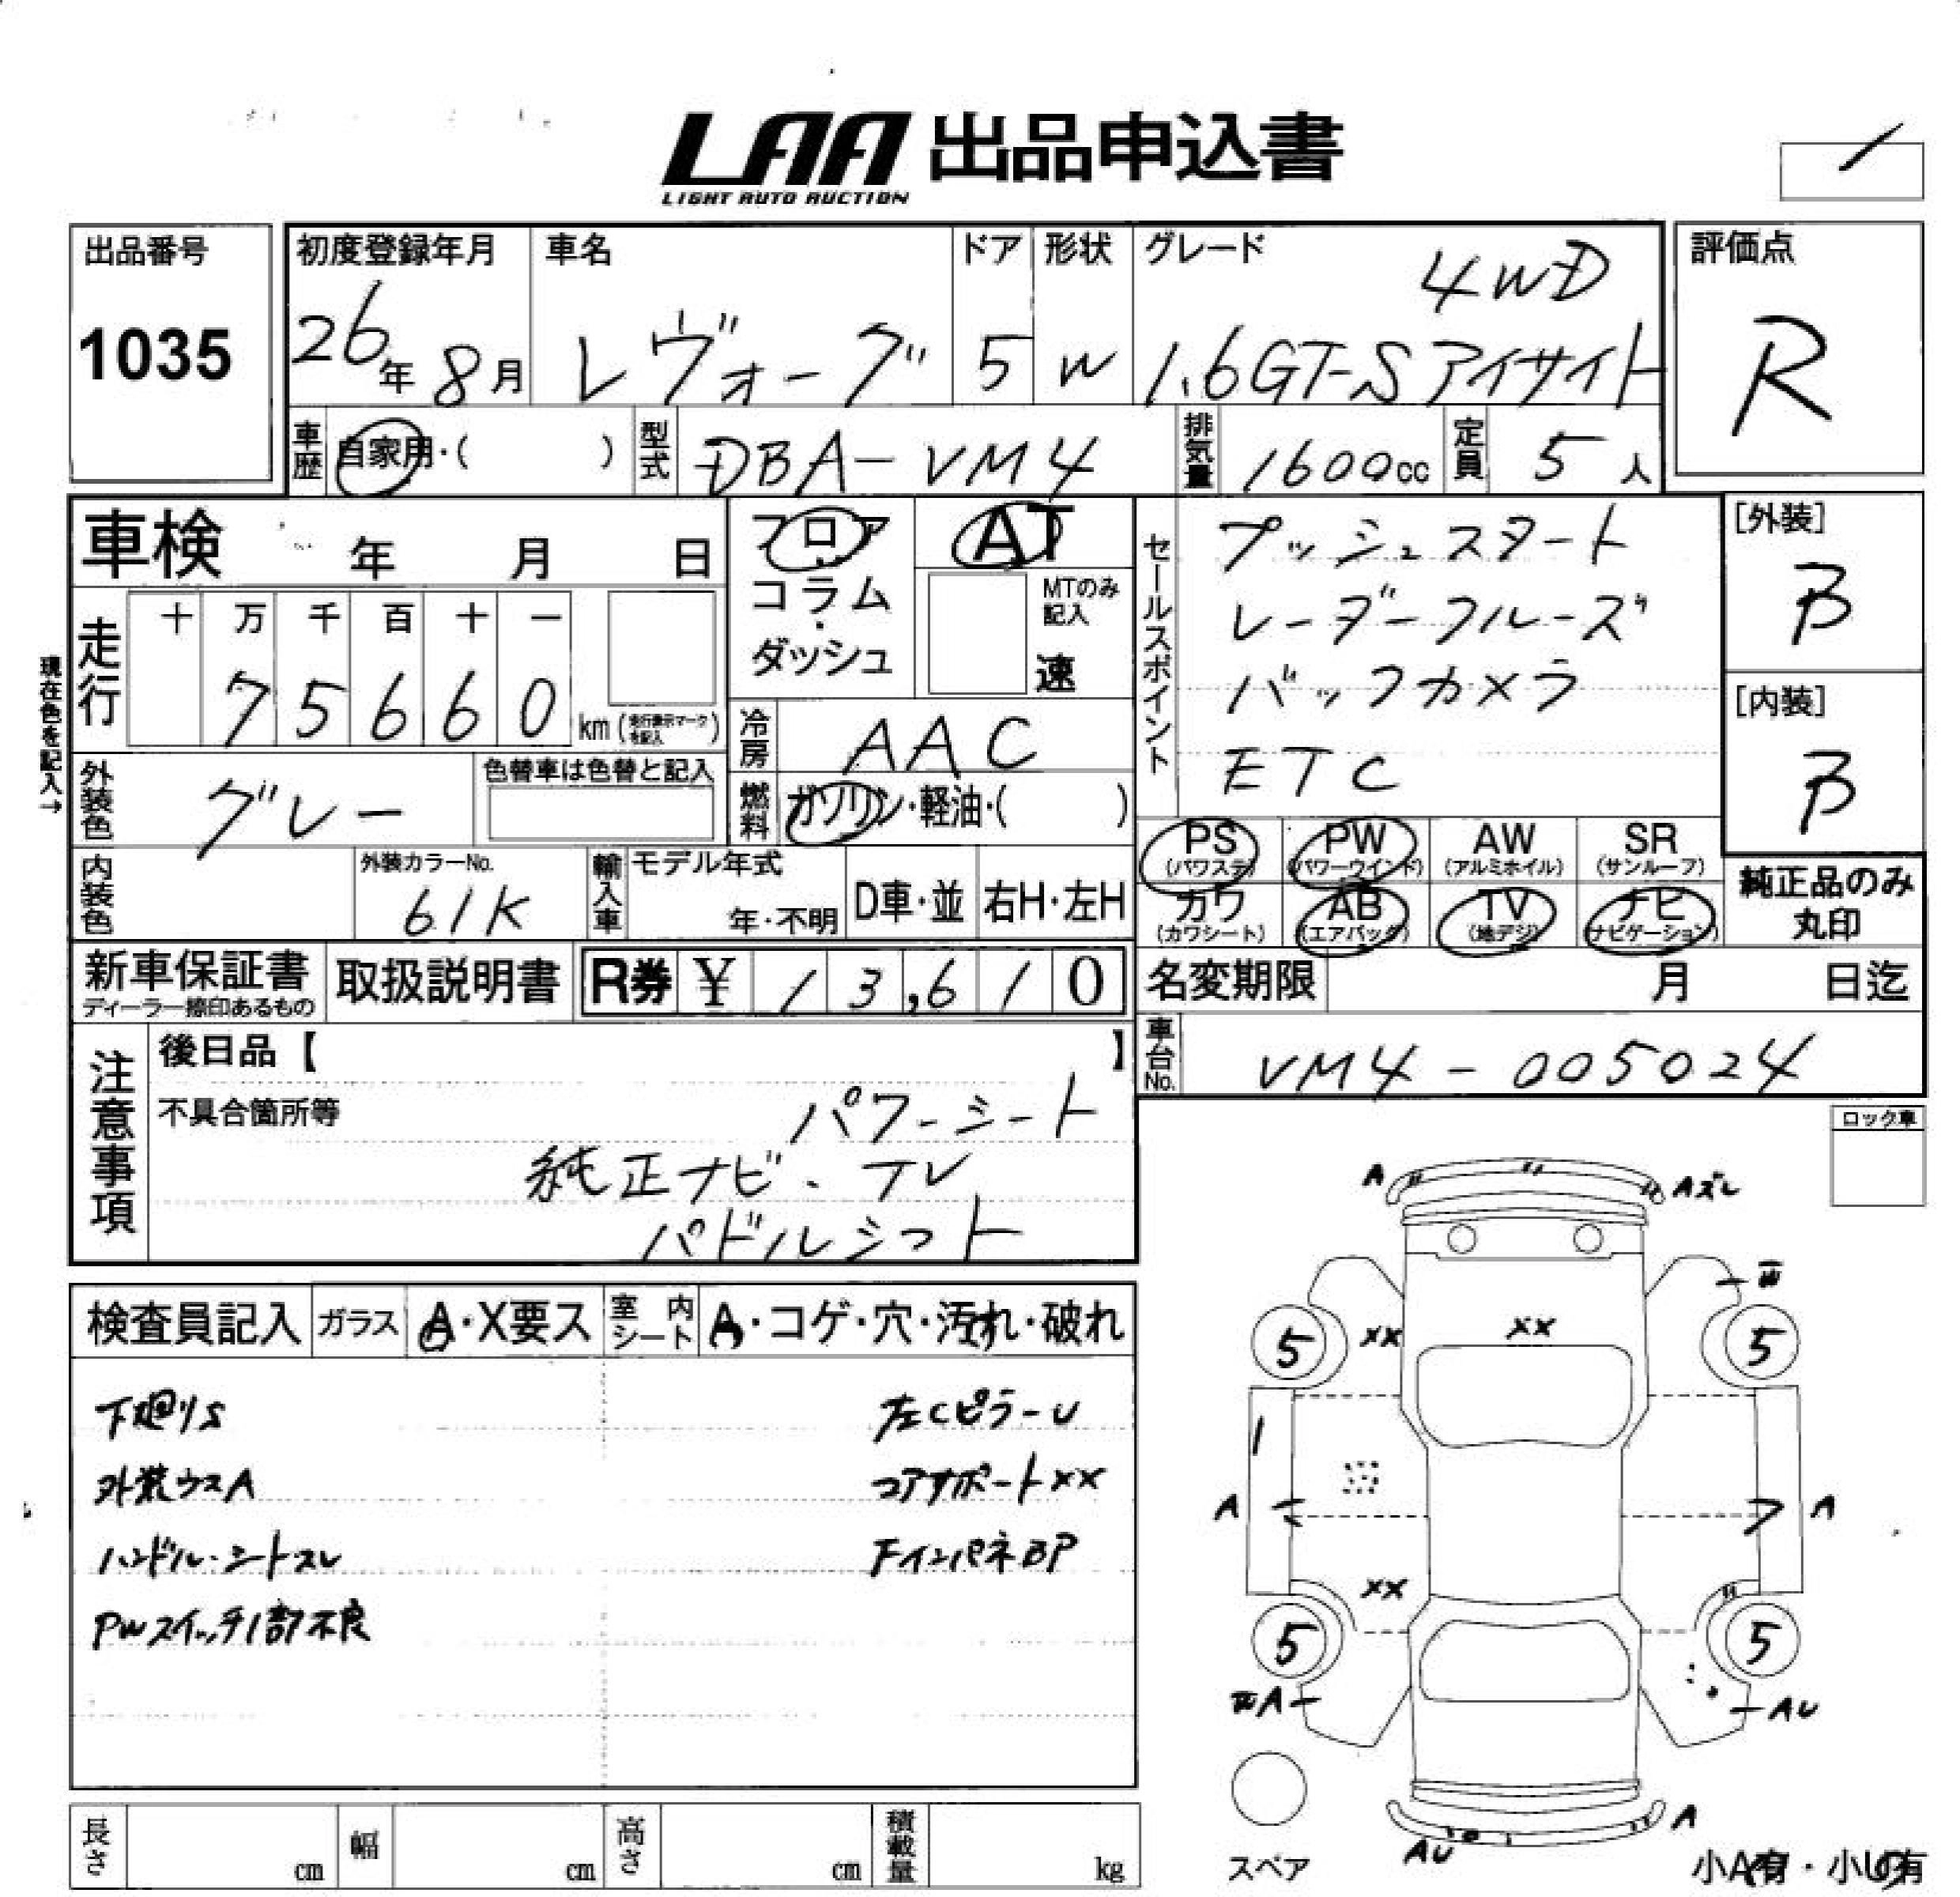 LAA 出品申込書
LIGHT AUTO AUCTION
出品番号
1035
初度登録年月
26年 8月
車名
レヴォーグ
ドア
5
形状
W
グレード
4WD
1.6GT-Sアイサイト
評価点
R
車歴
自家用・( )
型式
DBA-VM4
排気量
1600cc
定員
5人
車検 年 月 日
フロア・コラム・ダッシュ
AT
MTのみ記入
速
セールスポイント
プッシュスタート
レーダークルーズ
バックカメラ
ETC
[外装]
B
[内装]
B
現在色を記入→
走行
十 万 千 百 十 一
7 5 6 6 0 km (走行表示マークを記入)
冷房
AAC
外装色
グレー
色替車は色替と記入
燃料
ガソリン・軽油・( )
PS (パワステ)
PW (パワーウインド)
AW (アルミホイル)
SR (サンルーフ)
カワ (カワシート)
AB (エアバック)
TV (地デジ)
ナビ (ナビゲーション)
純正品のみ
丸印
内装色
外装カラーNo.
61K
輸入車
モデル年式
年・不明
D車・並
右H・左H
新車保証書
ディーラー捺印あるもの
取扱説明書
R券 ¥ 13,610
名変期限 月 日迄
車台No.
VM4-005024
注意事項
後日品【 】
不具合箇所等
パワーシート
純正ナビ・TV
パドルシフト
ロック車
検査員記入
ガラス A・X要ス
室内シート A・コゲ・穴・汚れ・破れ
下廻りS
外装ウスA
ハンドル・シートスレ
PWスイッチ1部不良
左CピラーU
コアサポートXX
FインパネBP
A
Aズレ
W
XX
XX
5
5
A
A
XX
5
5
A
AU
AU
A
スペア
小A有・小U有
長さ cm
幅 cm
高さ cm
積載量 kg